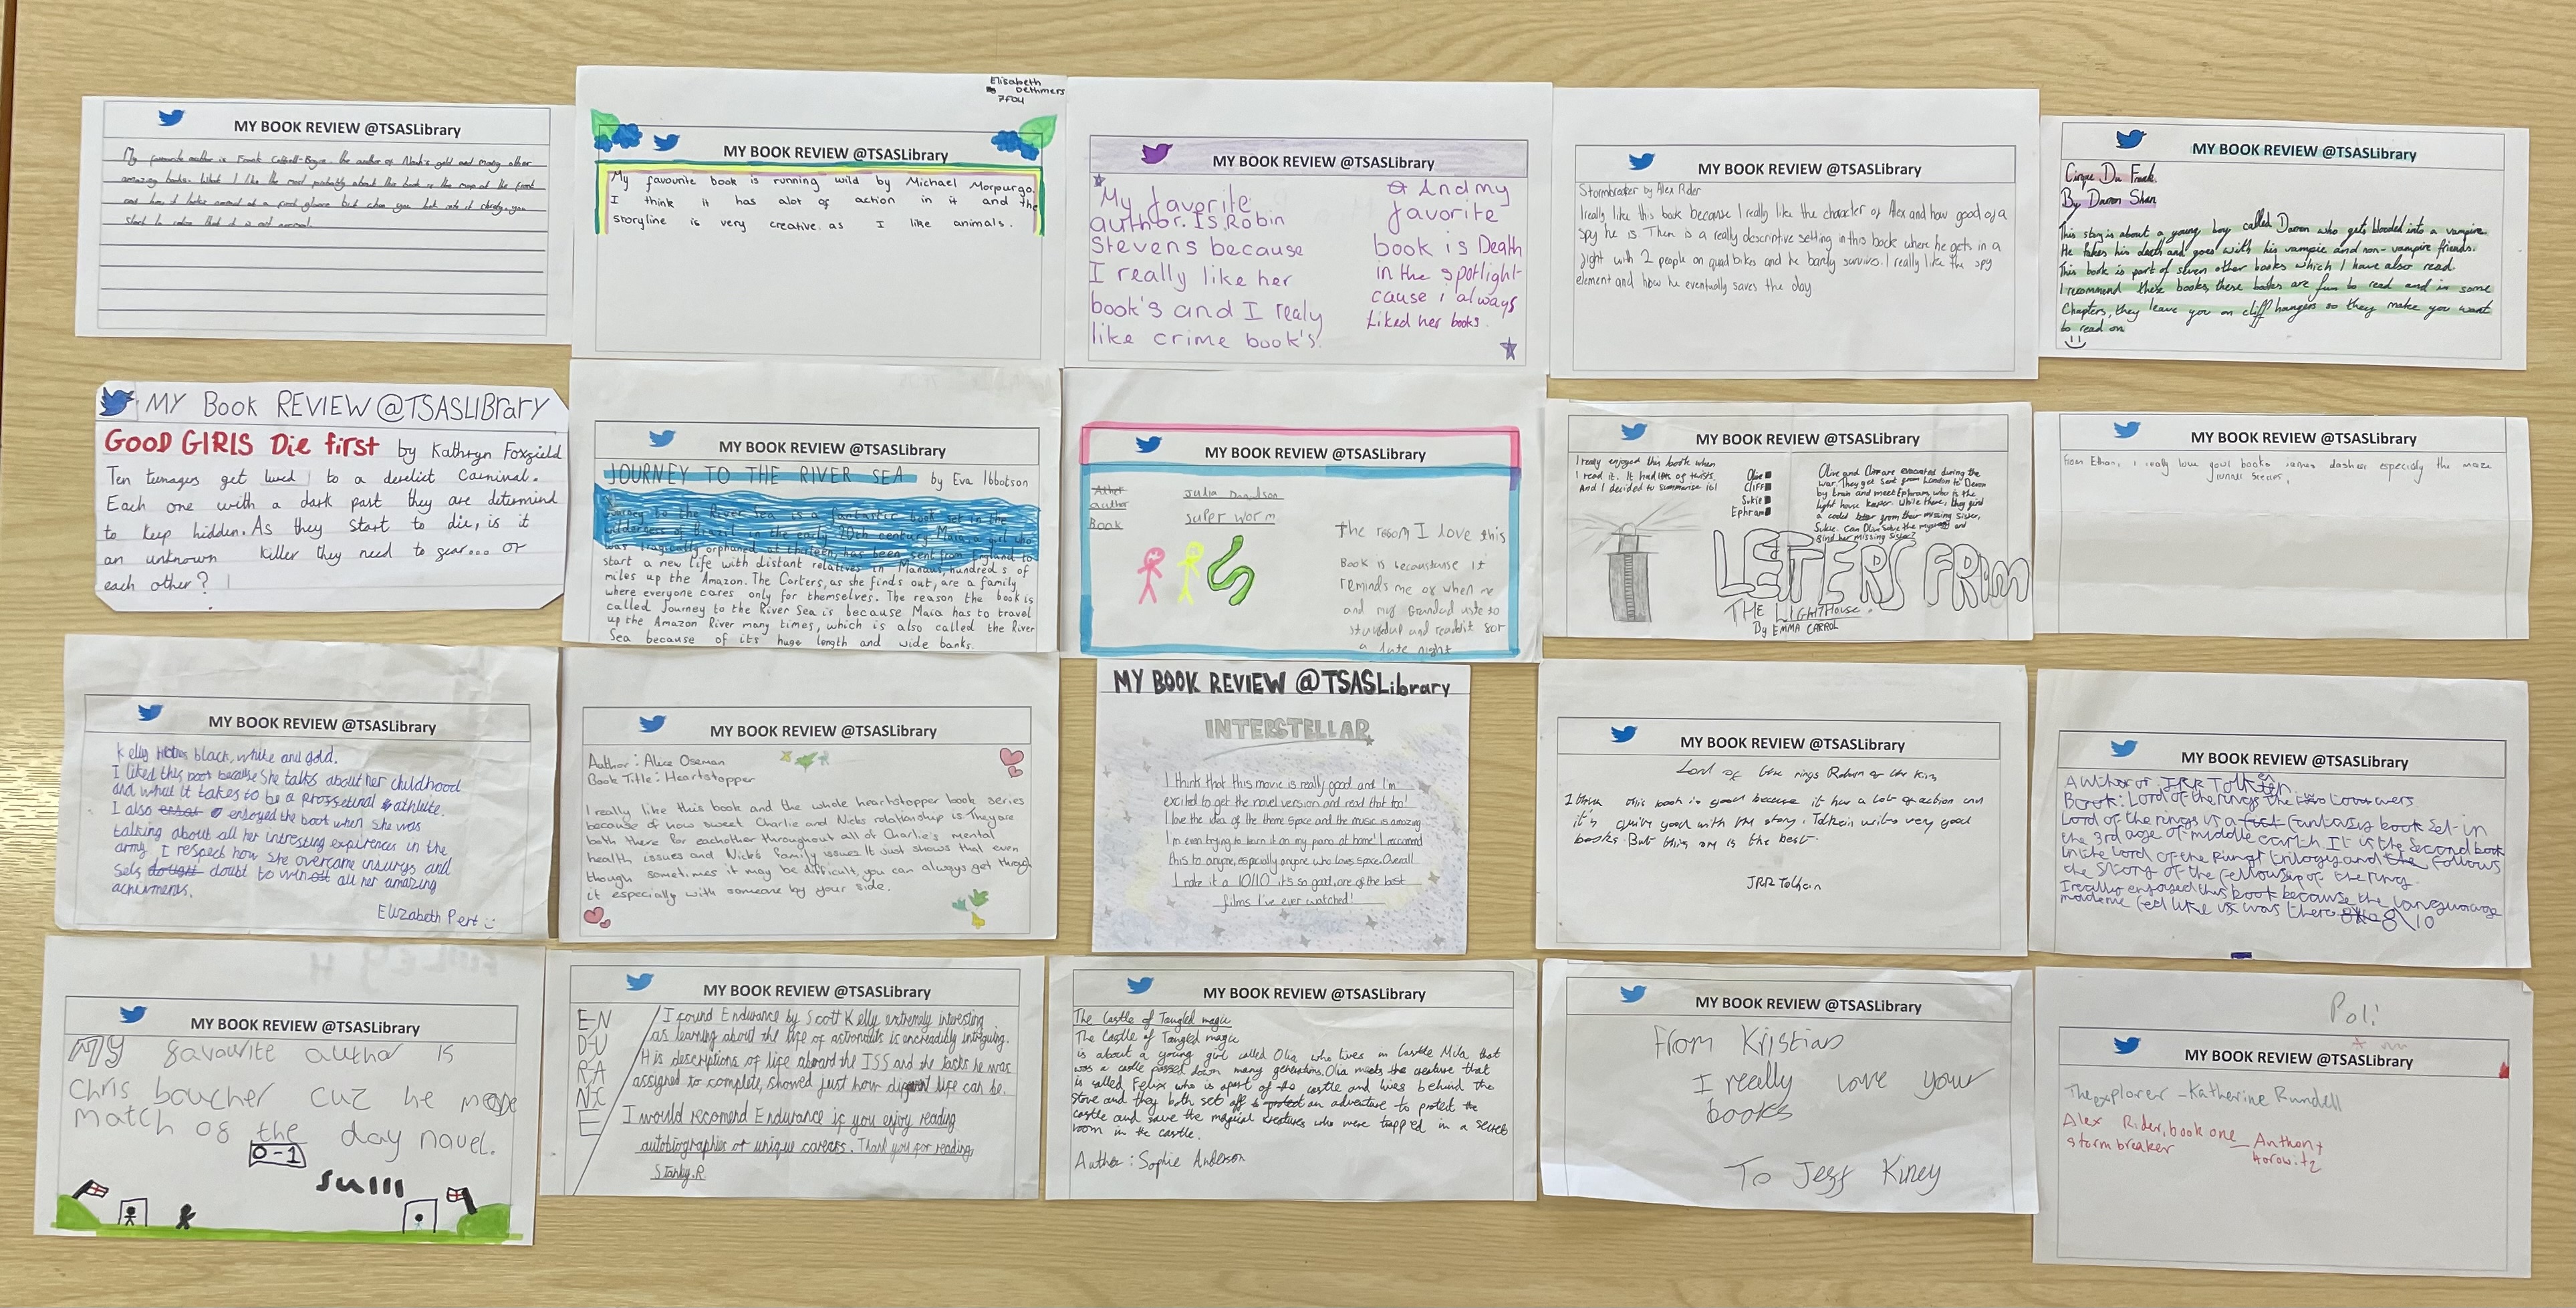 MY BOOK REVIEW @TSASLibrary
My favourite author is Frank Cottrell-Boyce the author of Noah's gold and many other
amazing books. What I like the most probably about the book is the map at the front
and how it looks normal at a first glance but when you look into it closely you
start to notice that it is not normal.
Elisabeth
Dethmers
7F04
MY BOOK REVIEW @TSASLibrary
My favourite book is running wild by Michael Morpurgo.
I think it has alot of action in it and the
storyline is very creative as I like animals.
MY BOOK REVIEW @TSASLibrary
My favorite
author. Is Robin
Stevens because
I really like her
book's and I realy
like crime book's.
And my
favorite
book is Death
in the spotlight
cause i always
liked her books.
MY BOOK REVIEW @TSASLibrary
Stormbreaker by Alex Rider
I really like this book because I really like the character of Alex and how good of a
spy he is Then is a really descriptive setting in this book where he gets in a
fight with 2 people on quad bikes and he barely survives. I really like the spy
element and how he eventually saves the day
MY BOOK REVIEW @TSASLibrary
Cirque Du Freak
By Darren Shan
This story is about a young boy called Darren who gets blooded into a vampire.
He fakes his death and goes with his vampie and non-vampire friends.
This book is part of seven other books which I have also read.
I recommend these books, these books are fun to read and in some
Chapters, they leave you on cliff hangers so they make you want
to read on
MY Book REVIEW @TSASLIBrary
GOOD GIRLS Die first by Kathryn Foxfield
Ten teenagers get lured to a derelict Carnival.
Each one with a dark past they are determind
to keep hidden. As they start to die, is it
an unknown killer they need to fear... or
each other?
MY BOOK REVIEW @TSASLibrary
JOURNEY TO THE RIVER SEA by Eva Ibbotson
Journey to the River Sea is a fantastic book set in the
wilderness of Brazil in the early 20th century. Maia, a girl who
was tragically orphaned at thirteen, has been sent from England to
start a new life with distant relatives in Manaus, hundreds of
miles up the Amazon. The Carters, as she finds out, are a family
where everyone cares only for themselves. The reason the book is
called Journey to the River Sea is because Maia has to travel
up the Amazon River many times, which is also called the River
Sea because of its huge length and wide banks.
MY BOOK REVIEW @TSASLibrary
author
Julia Donaldson
Book
super worm
The reson I love this
Book is becaustause it
reminds me of when me
and my Grandad uste to
and readit for
a late night
MY BOOK REVIEW @TSASLibrary
I really enjoyed this book when
I read it. It had lots of twists.
And I decided to summarise it!
Olive
CLIFF
Sukie
Ephram
Olive and Cliff are evacuated during the
war. They get sent from London to Devon
by train and meet Ephram, who is the
light house keeper. While there, they find
a coded letter from their missing sister,
Sukie. Can Olive solve the mystery and
find her missing sister?
LETTERS FROM
THE LIGHTHOUSE
By EMMA CARROL
MY BOOK REVIEW @TSASLibrary
From Ethan, i really love your books james dashner especialy the maze
runner series,
MY BOOK REVIEW @TSASLibrary
Kelly Holmes black, white and gold.
I liked this book because She talks about her childhood
and what it takes to be a proffetinal athlete.
I also enjoyed the book when she was
talking about all her intresting expirences in the
army. I respect how she overcame insurys and
selfs doubt to win all her amazing
achievments.
Elizabeth Pert
MY BOOK REVIEW @TSASLibrary
Author: Alice Oseman
Book Title: Heartstopper
I really like this book and the whole heartstopper book series
because of how sweet Charlie and Nicks relationship is They are
both there for eachother throughout all of Charlie's mental
health issues and Nick's family issues It just shows that even
though sometimes it may be difficult, you can always get through
it especially with someone by your side.
MY BOOK REVIEW @TSASLibrary
INTERSTELLAR
I think that this movie is really good and I'm
excited to get the novel version and read that too!
I love the idea of the theme space and the music is amazing
I'm even trying to learn it on my piano at home! I recomend
this to anyone, especially anyone who loves space. Overall
I rate it a 10/10 it's so good, one of the best
films I've ever watched!
MY BOOK REVIEW @TSASLibrary
Lord of the rings Return of the King
I think this book is good because it has a lot of action and
it's quite good with the story. Tolkein writes very good
books. But this one is the best.
JRR Tolkein
MY BOOK REVIEW @TSASLibrary
Author JRR Tolkien
Book: Lord of the rings the two towers
Lord of the rings is a fantasy book set in
the 3rd age of middle earth. It is the second book
in the Lord of the Rings trilogy and follows
the story of the fellowship of the ring.
I really enjoyed this book because the languauage
mademe feel like i was there 8/10
MY BOOK REVIEW @TSASLibrary
MY favourite author is
Chris boucher cuz he made
match of the day novel.
0-1
suiii
MY BOOK REVIEW @TSASLibrary
E-N
D-U
R-A
N-C
E
I found Endurance by Scott Kelly extremely interesting
as learning about the life of astronauts is encreadibly intriguing.
His descriptions of life aboard the ISS and the tasks he was
assigned to complete, showed just how different life can be.
I would recomend Endurance if you enjoy reading
autobiographies or unique careers. Thank you for reading
Stanley.R
MY BOOK REVIEW @TSASLibrary
The Castle of Tangled magic
The Castle of Tangled magic
is about a young girl called Olia who lives in Castle Mila that
was a castle passed down many generations. Olia meets the creature that
is called Felix who is apart of the castle and lives behind the
stove and they both set off to an adventure to protect the
castle and save the magical creatures who were trapped in a secret
room in the castle.
Author: Sophie Anderson
MY BOOK REVIEW @TSASLibrary
From Kristian
I really love your
books
To Jeff Kiney
Poli
MY BOOK REVIEW @TSASLibrary
The explorer - Katherine Rundell
Alex Rider, book one - Anthony
stormbreaker Horowitz